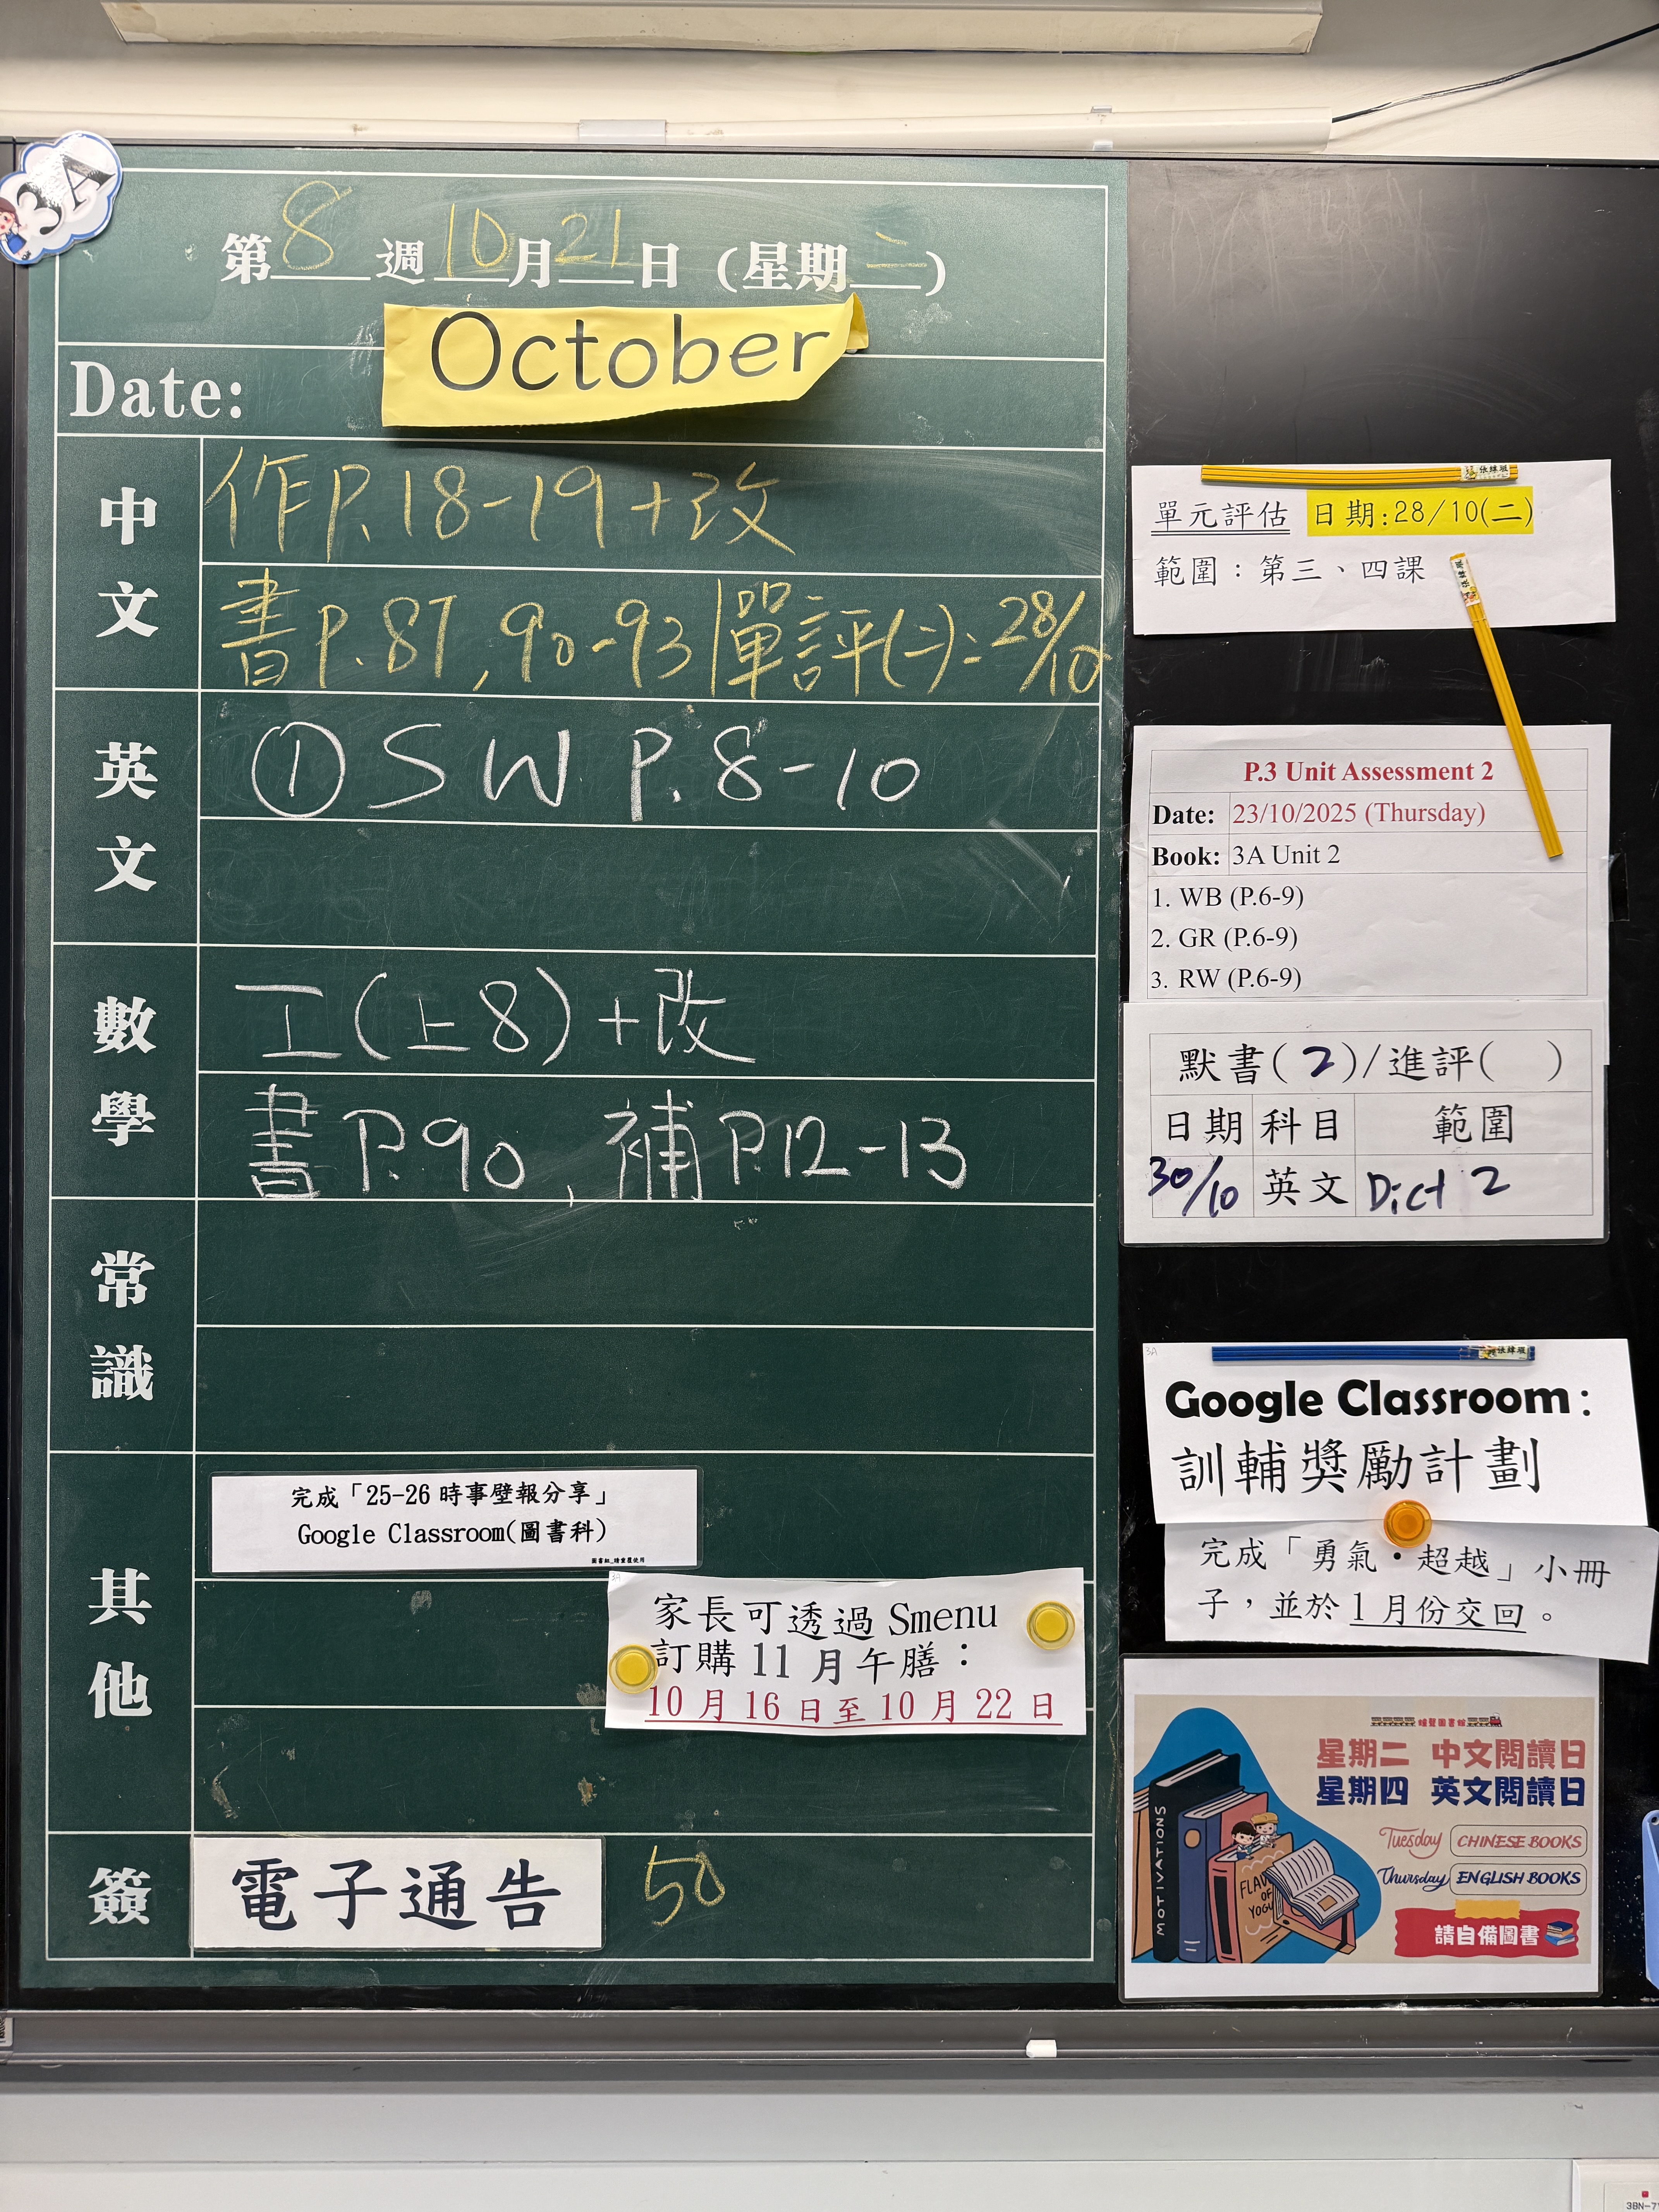 3A
第8週10月21日（星期二）
October
Date:
中文
作P.18-19+改
書P.87,90-93|單評(二):28/10
英文
①SW P.8-10
數學
工(上8)+改
書P.90,補P.12-13
常識
其他
完成「25-26 時事壁報分享」
Google Classroom(圖書科)
圖書組_請重覆使用
3A
家長可透過 Smenu
訂購 11 月午膳：
10 月 16 日至 10 月 22 日
簽
電子通告
50
單元評估 日期:28/10(二)
範圍：第三、四課
P.3 Unit Assessment 2
Date: 23/10/2025 (Thursday)
Book: 3A Unit 2
1. WB (P.6-9)
2. GR (P.6-9)
3. RW (P.6-9)
默書( 2 )/進評( )
日期 科目 範圍
30/10 英文 Dict 2
3A
Google Classroom：
訓輔獎勵計劃
完成「勇氣・超越」小冊
子，並於1月份交回。
星期二 中文閱讀日
星期四 英文閱讀日
Tuesday CHINESE BOOKS
Thursday ENGLISH BOOKS
請自備圖書
MOTIVATIONS